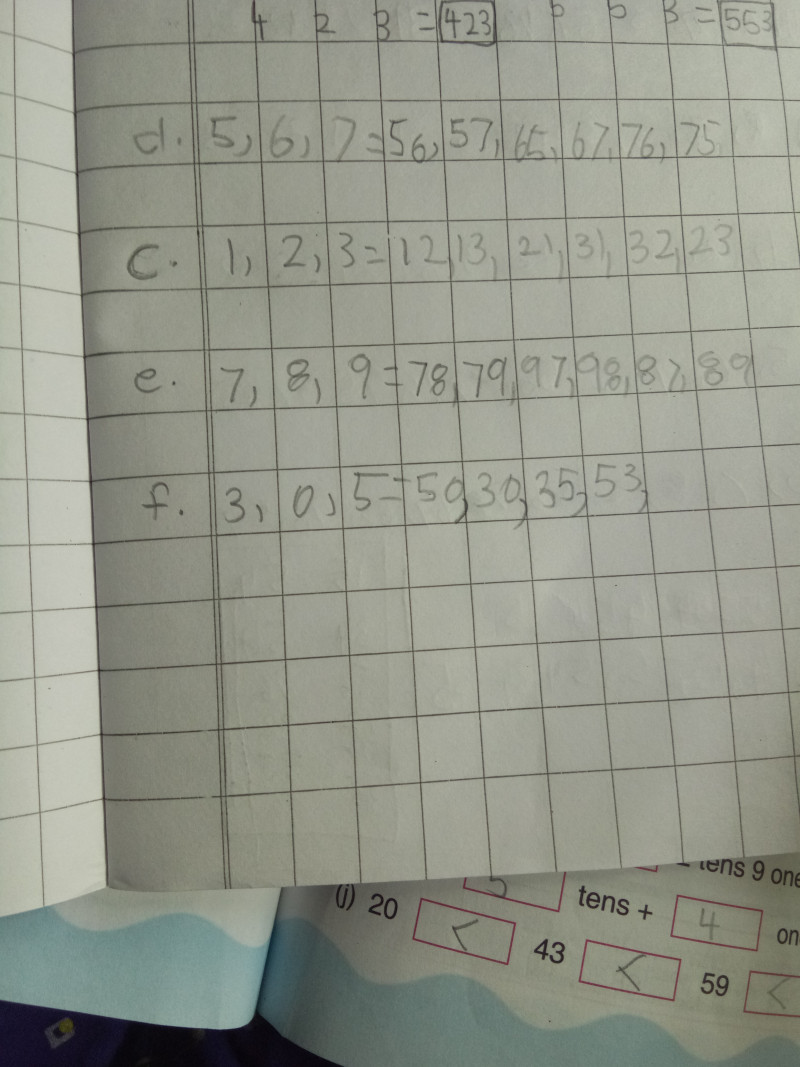 4 2 3 = 423 5 5 3 = 553
d. 5, 6, 7 = 56, 57, 65, 67, 76, 75
c. 1, 2, 3 = 12, 13, 21, 31, 32, 23
e. 7, 8, 9 = 78, 79, 97, 98, 87, 89
f. 3, 0, 5 = 50, 30, 35, 53,
tens 9 one
5 tens + 4 on
(j) 20 < 43 < 59 <